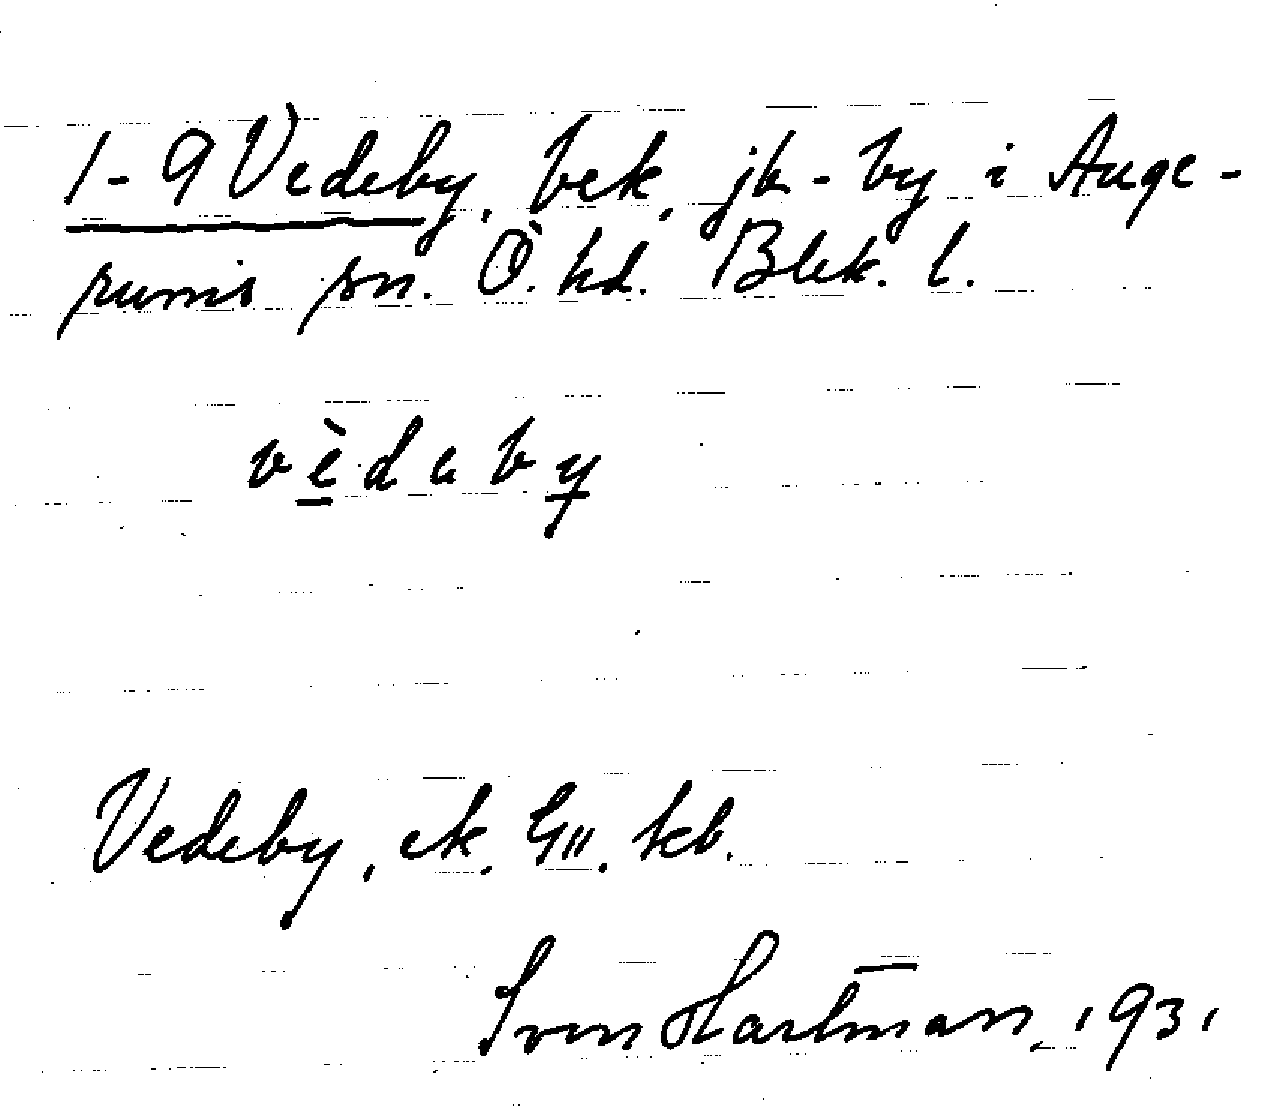 1-9 Vedeby, bek. jb-by i Auge-
rums sn. Ö. hd. Blek. l.
vèdeby
Vedeby, ek. G11. kb.
Sven Hartman, 1931